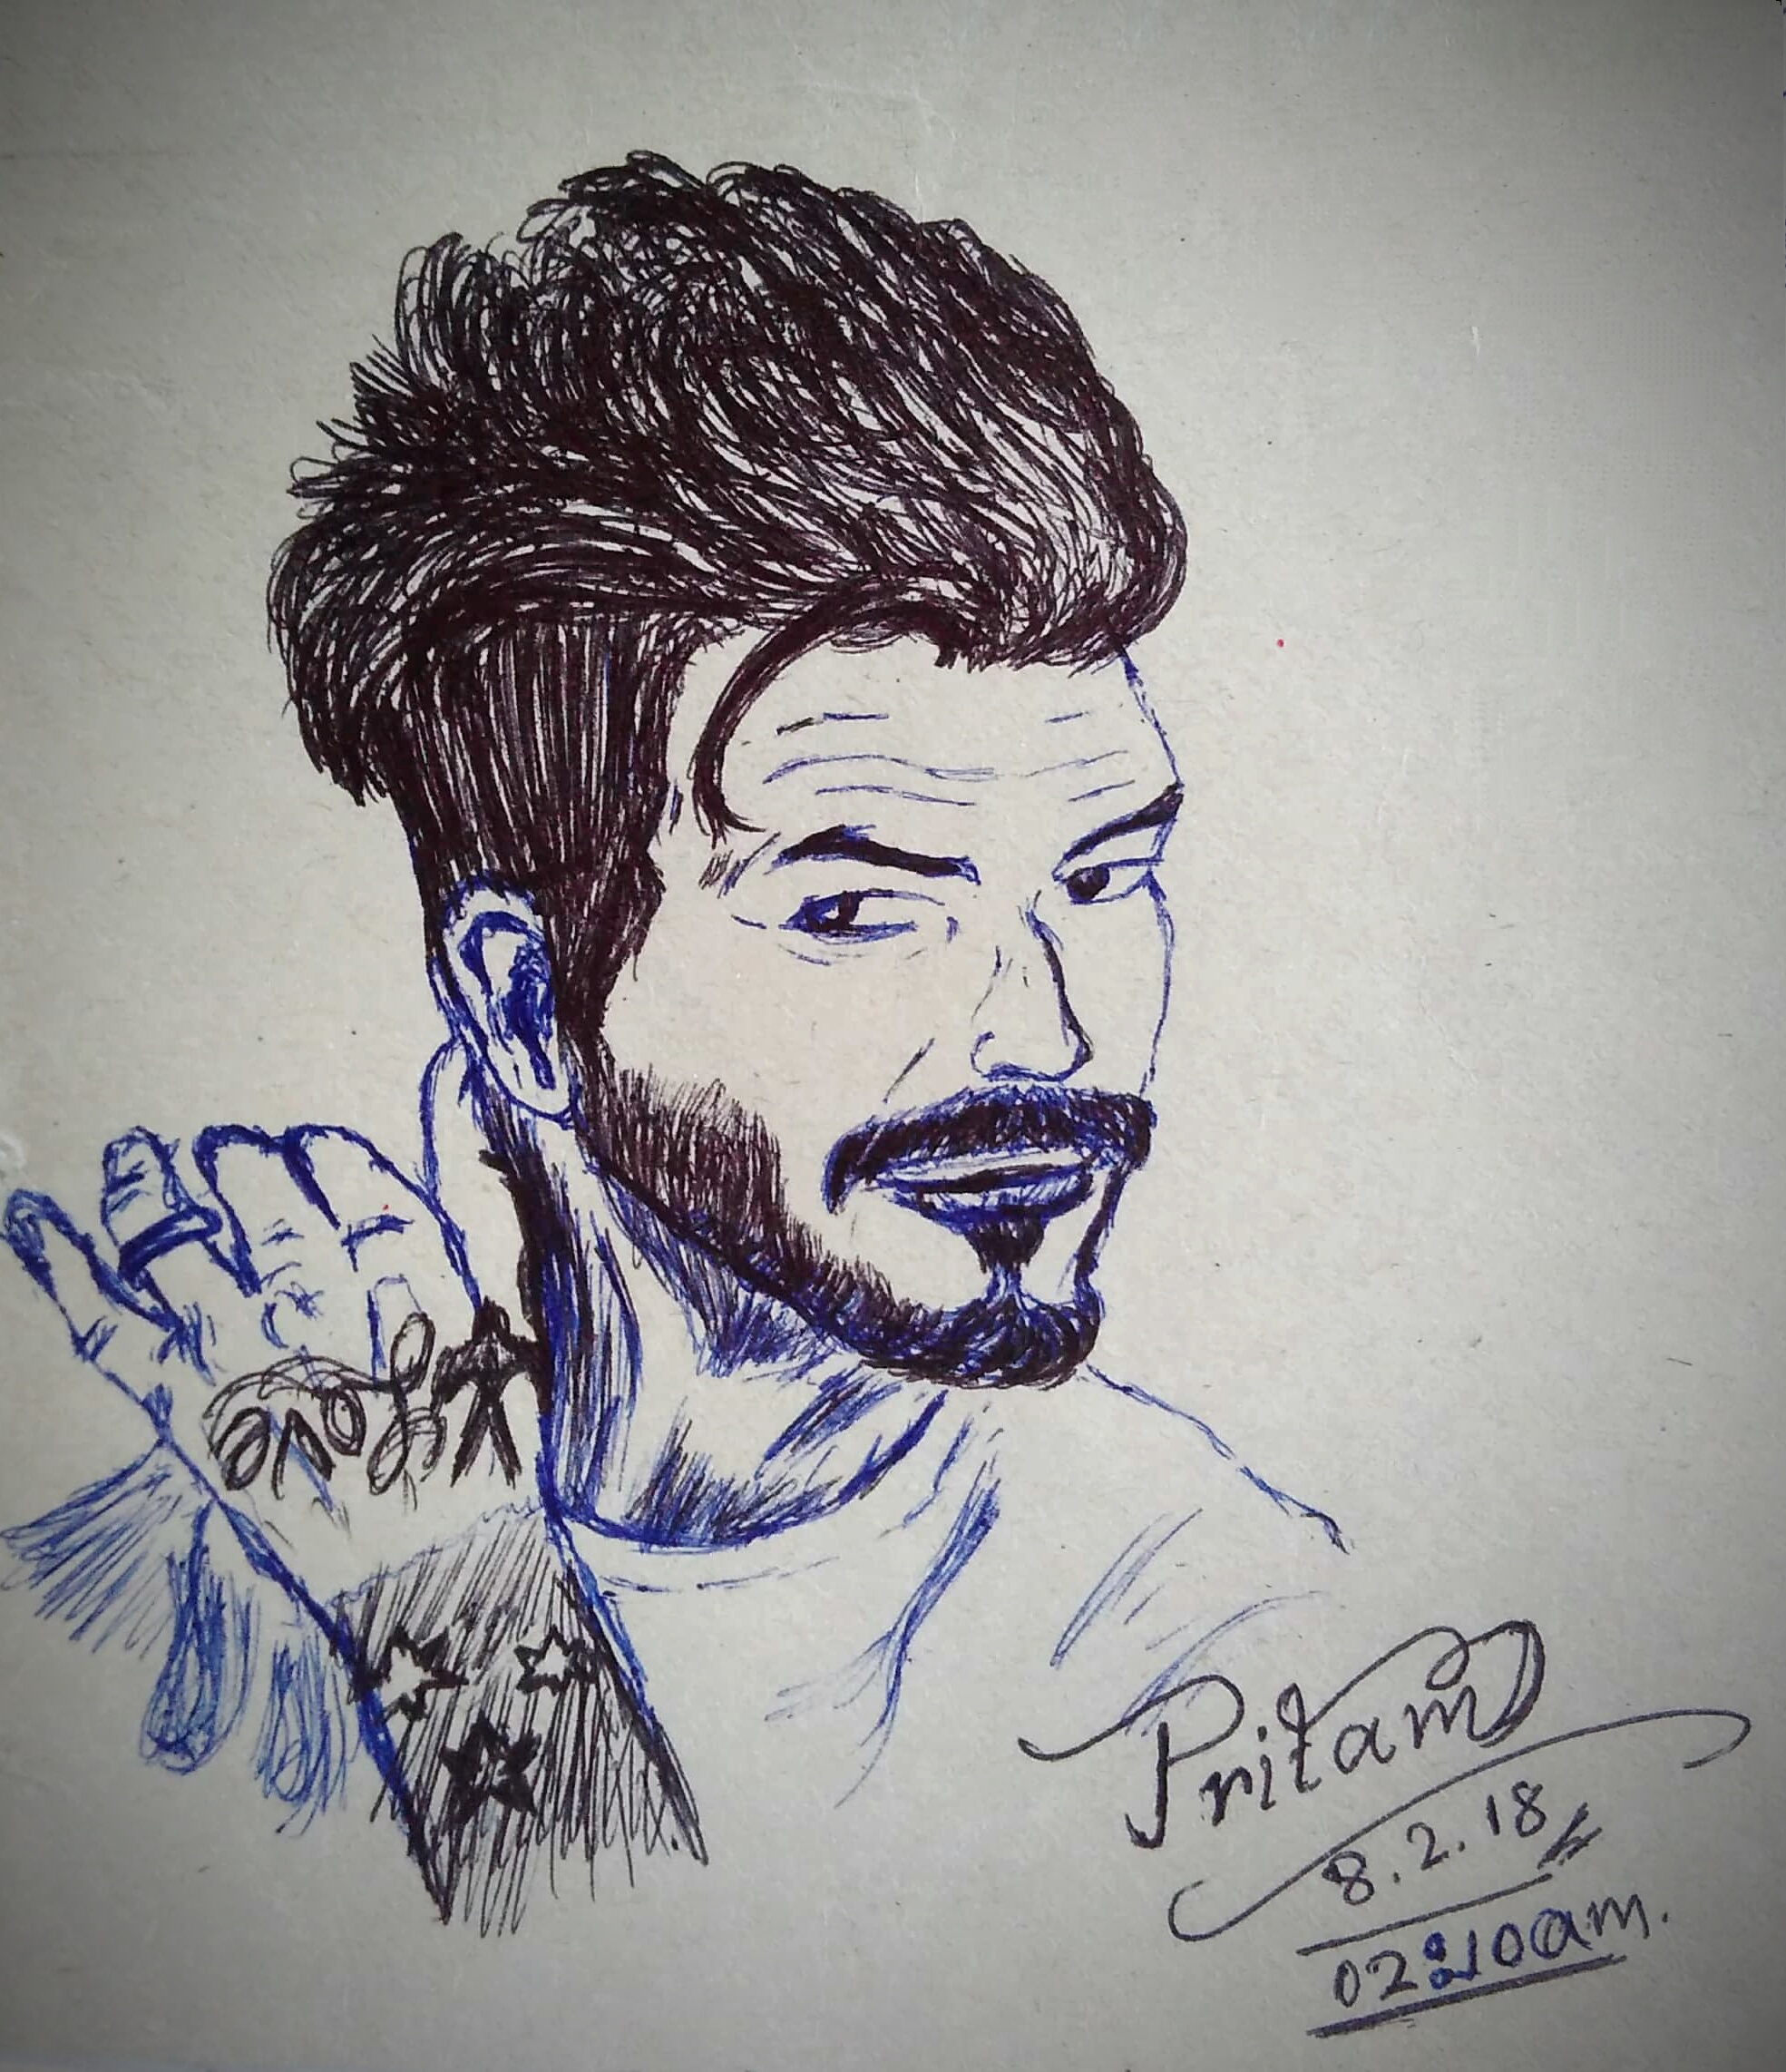 Pritam
8.2.18
02:10am.